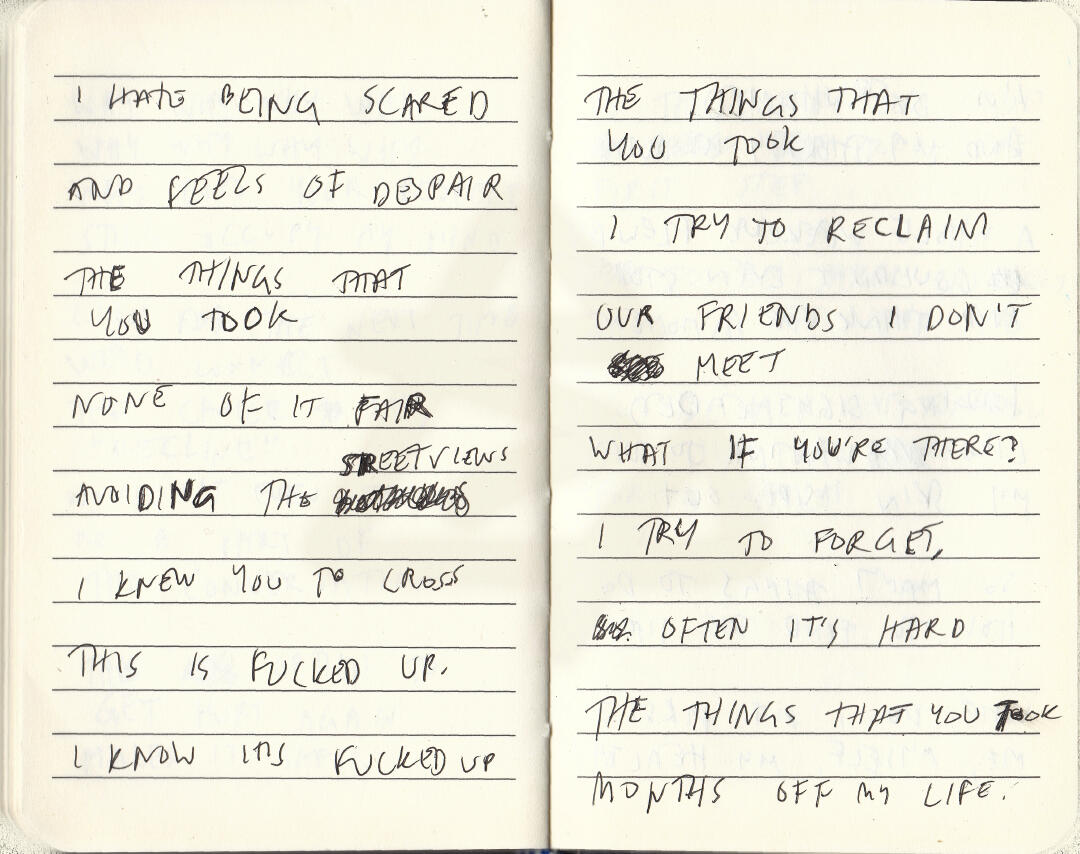 I HATE BEING SCARED
AND FEELS OF DESPAIR
THE THINGS THAT
YOU TOOK
NONE OF IT FAIR
STREETVIEWS
AVOIDING THE
I KNEW YOU TO CROSS
THIS IS FUCKED UP.
I KNOW ITS FUCKED UP
THE THINGS THAT
YOU TOOK
I TRY TO RECLAIM
OUR FRIENDS I DON'T
MEET
WHAT IF YOU'RE THERE?
I TRY TO FORGET,
OFTEN IT'S HARD
THE THINGS THAT YOU TOOK
MONTHS OFF MY LIFE.